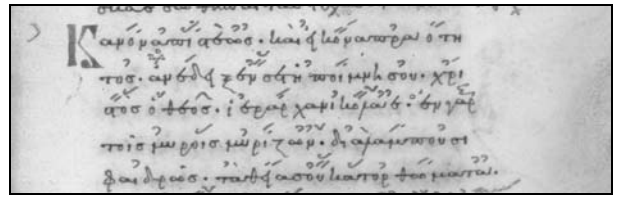 Κανόνα πίστεως· καὶ εἰκόνα πραότη
τος· ἀνέδειξεν σε τῆ ποίμνη σου· χρι
στὸς ὁ θεός· ἱεράρχα νικόλαε· ἐν γὰρ
τοῖς μύροις μυρίζων· διαλάμπουσι
φαιδρῶς· τὰ θεῖα σου κατορθώματα·